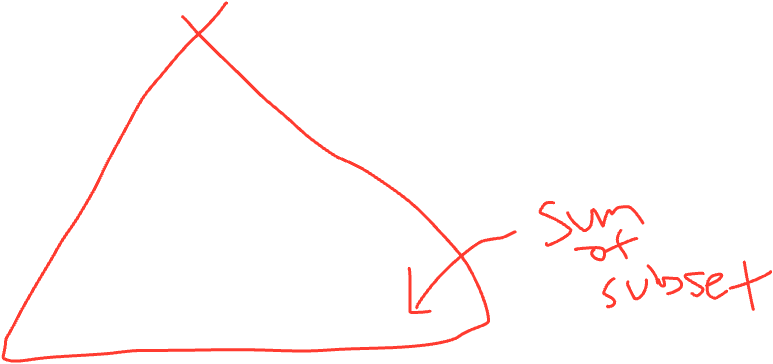 sum
of
subset